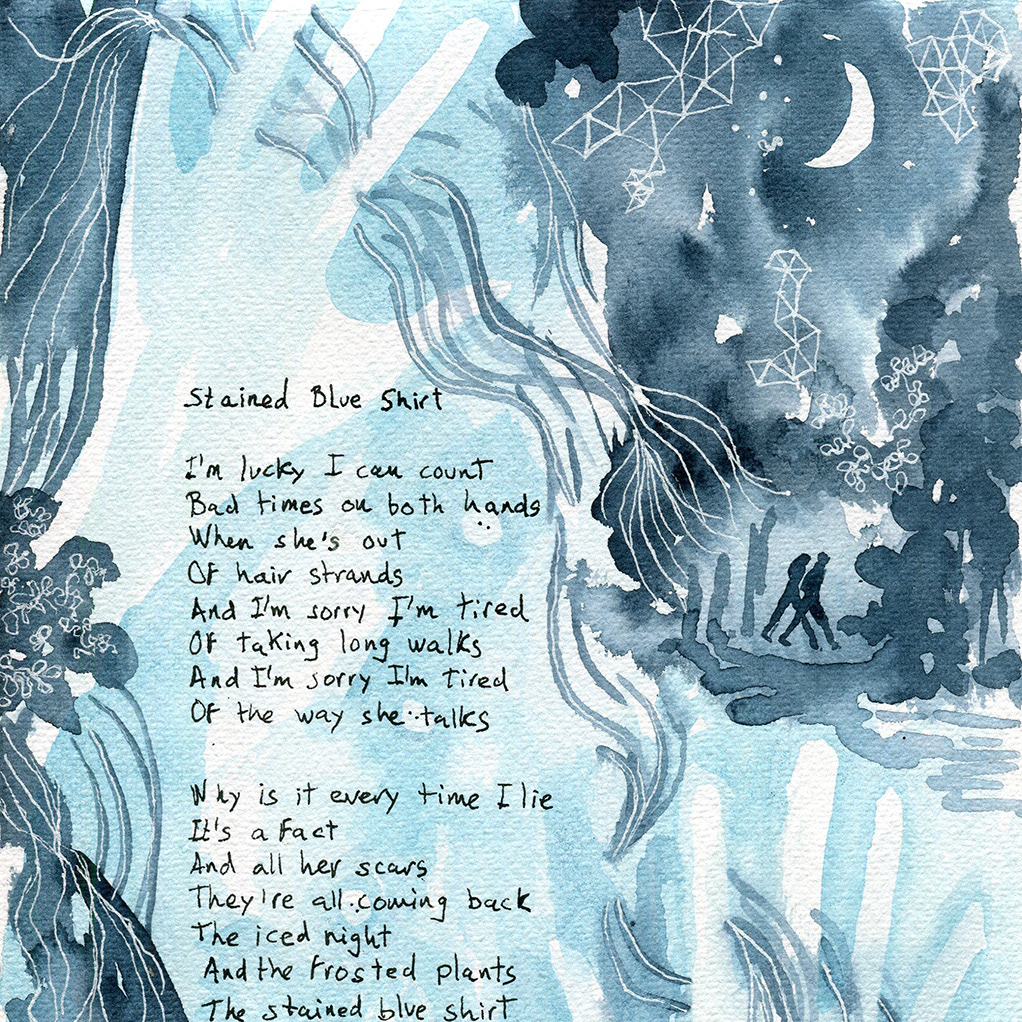 Stained Blue Shirt
I'm lucky I can count
Bad times on both hands
When she's out
Of hair strands
And I'm sorry I'm tired
Of taking long walks
And I'm sorry I'm tired
Of the way she talks
Why is it every time I lie
It's a fact
And all her scars
They're all coming back
The iced night
And the frosted plants
The stained blue shirt